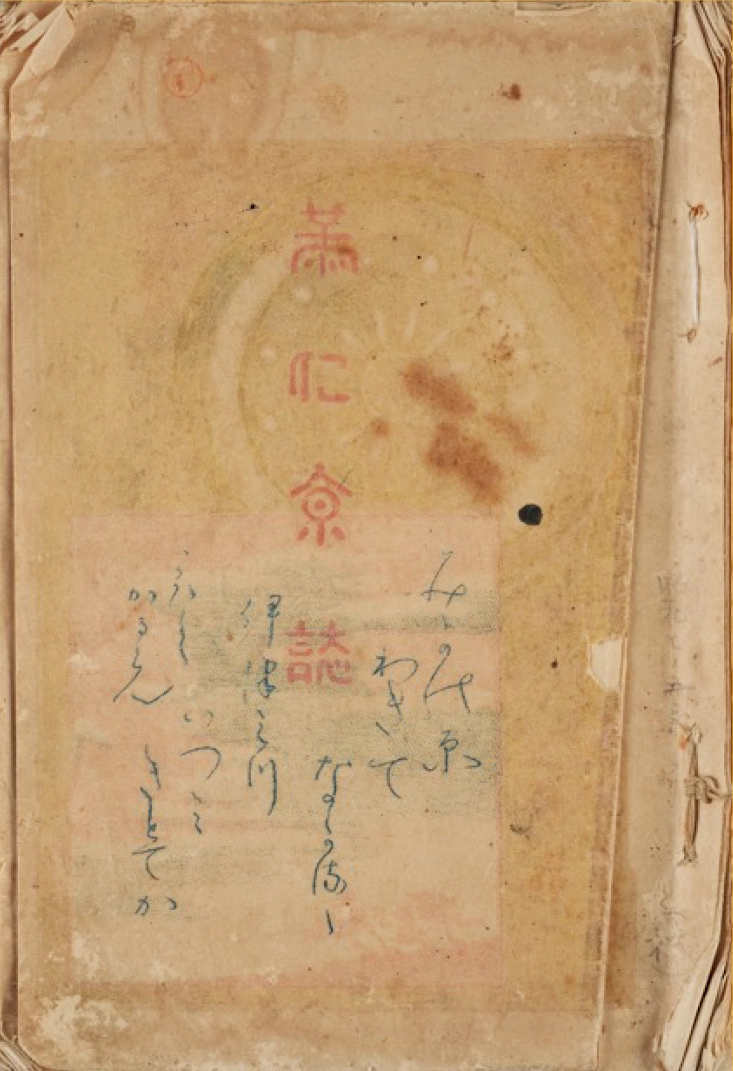 恭仁京誌
みかの原
わきて
なかるゝ
伊津み川
いつミ
きとてか
こひし
かるらん